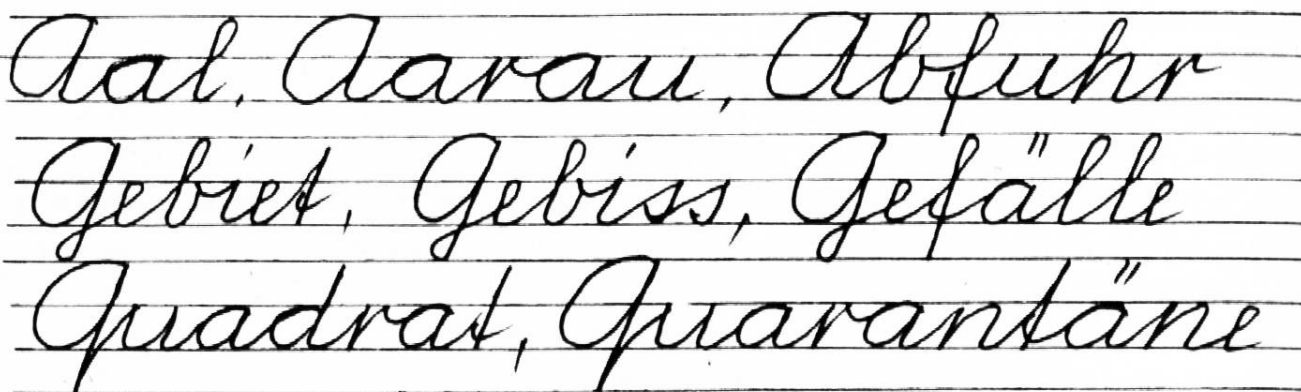 Aal, Aarau, Abfuhr
Gebiet, Gebiss, Gefälle
Quadrat, Quarantäne